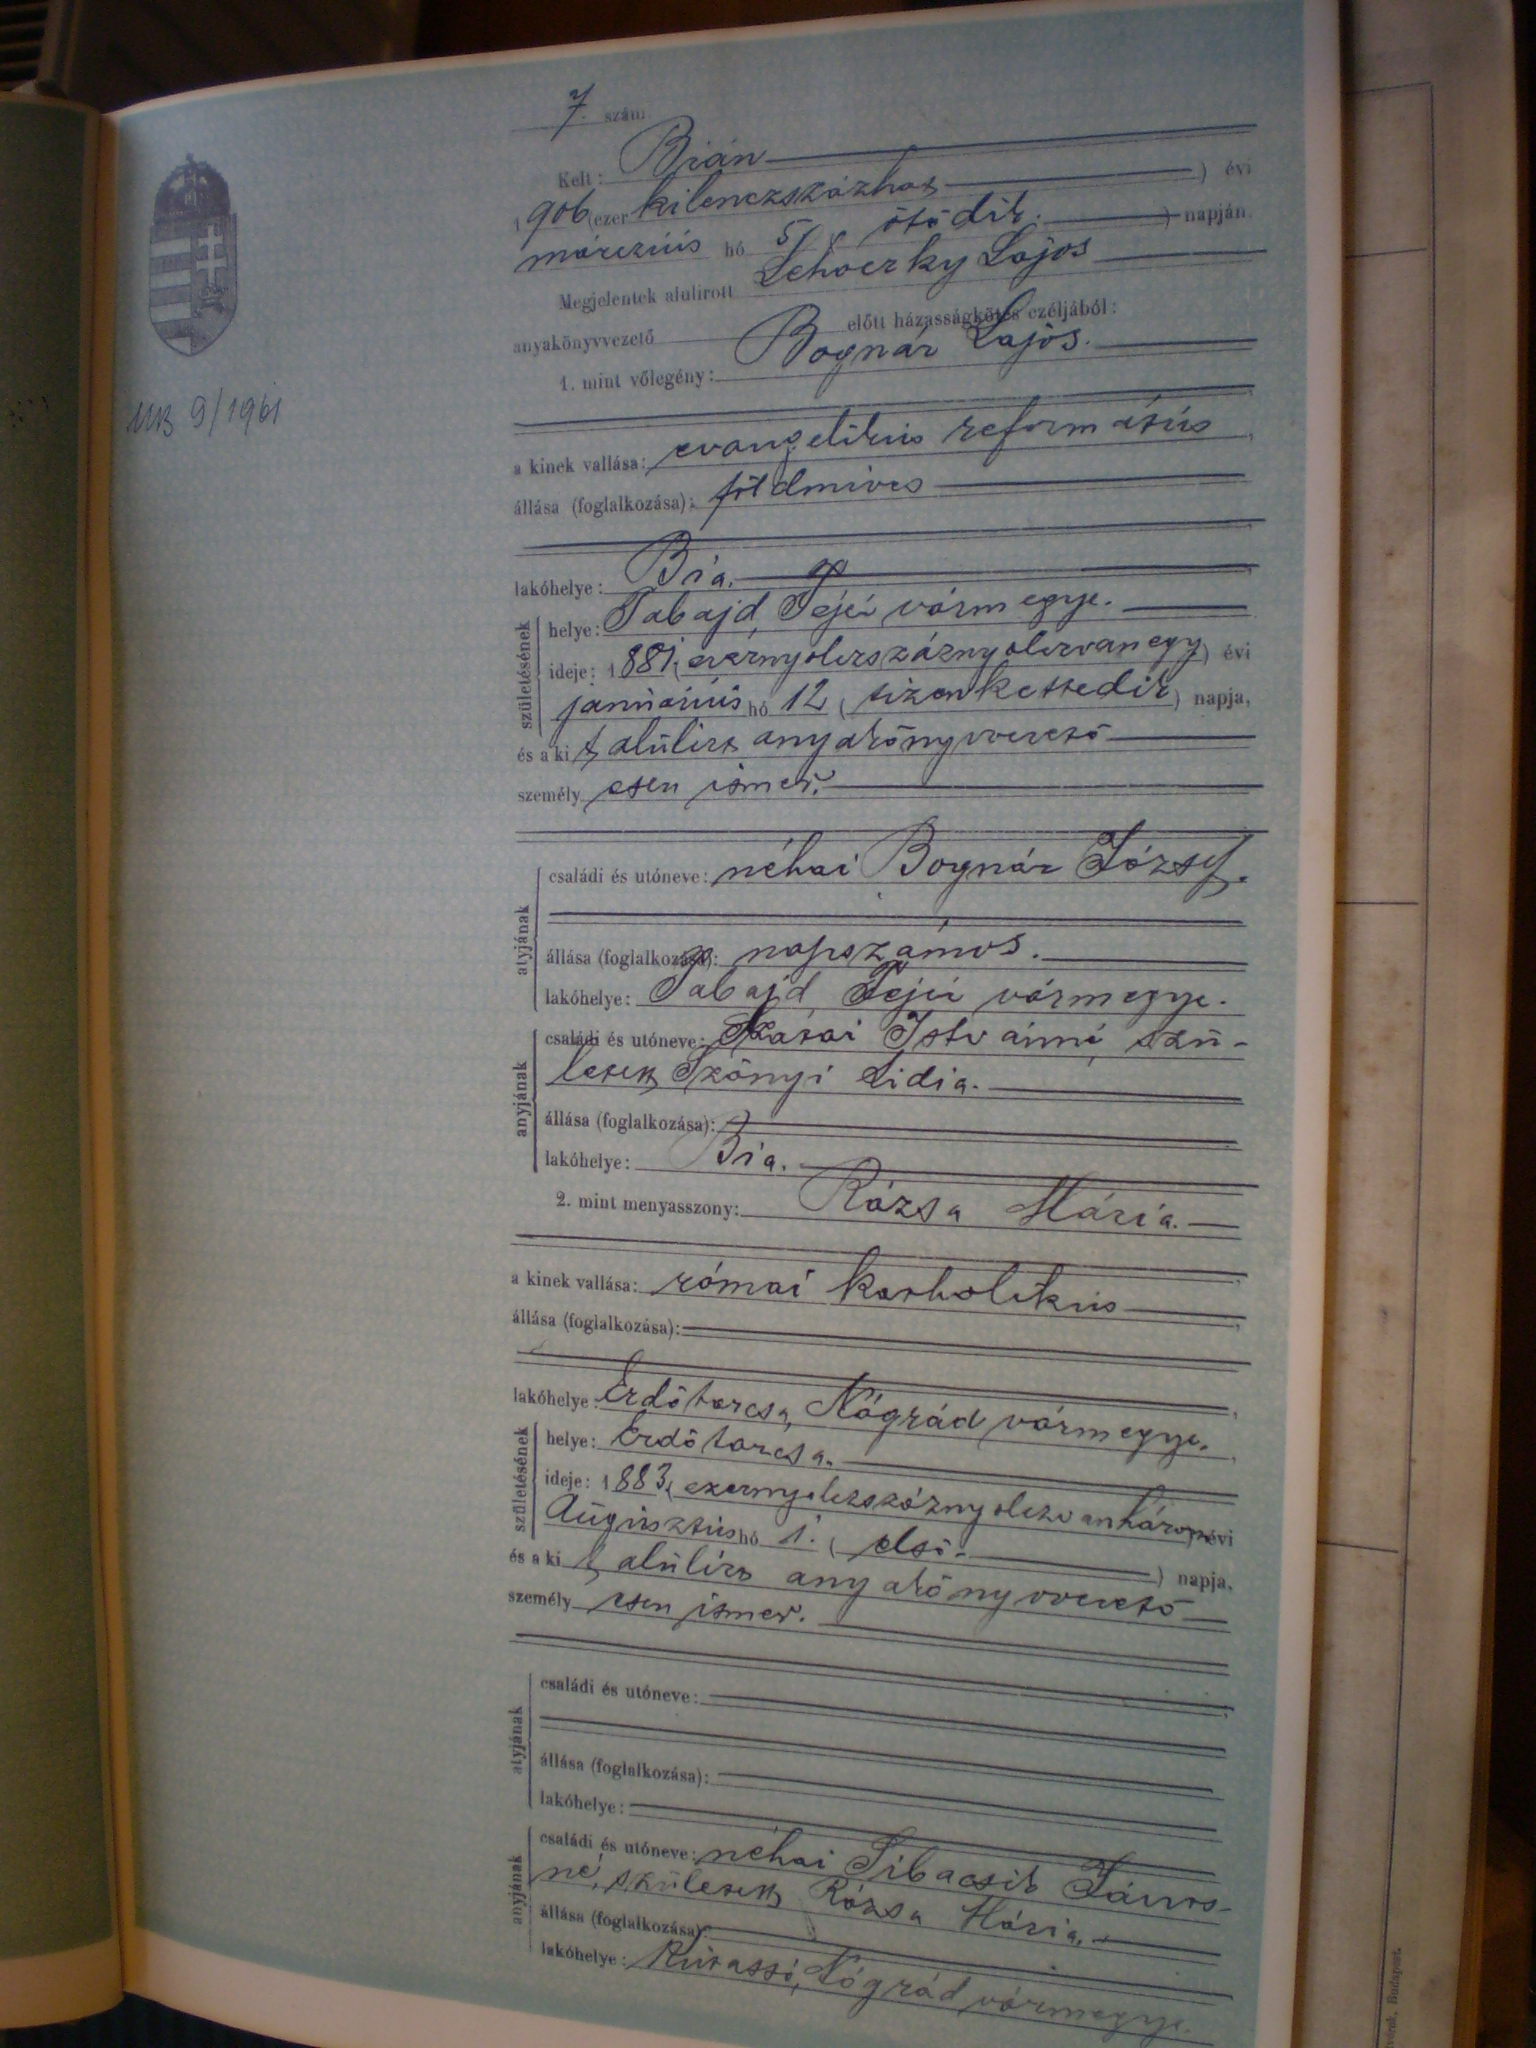 7. szám.
Kelt: Bián
1906 (ezer kilenczszázhat) évi
márczius hó 5 (ötödik.) napján.
Megjelentek alulirott Lehoczky Lajos
anyakönyvvezető előtt házasságkötés czéljából:
1. mint vőlegény: Bognár Lajos.
MB 9/1961
a kinek vallása: evangelikus református,
állása (foglalkozása): földmives
lakóhelye: Bia.
születésének
helye: Tabajd, Fejér vármegye.
ideje: 1881 (ezernyolczszáznyolczvanegy) évi
januárius hó 12 (tizenkettedik) napja,
és a ki t, alulirt anyakönyvvezető
személy esen ismer.
atyjának
családi és utóneve: néhai Bognár József.
állása (foglalkozása): napszámos.
lakóhelye: Tabajd Fejér vármegye.
anyjának
családi és utóneve: Istvánné, szü-
letett Szőnyi Lidia.
állása (foglalkozása):
lakóhelye: Bia.
2. mint menyasszony: Rózsa Mária.
a kinek vallása: római katholikus,
állása (foglalkozása):
lakóhelye: Erdőtarcsa, Nógrád vármegye.
születésének
helye: Erdőtarcsa.
ideje: 1883 (ezernyolczszáznyolczvanhárom) évi
Augusztus hó 1. (első.) napja,
és a ki t, alulirt anyakönyvvezető
személy esen ismer.
atyjának
családi és utóneve:
állása (foglalkozása):
lakóhelye:
anyjának
családi és utóneve: néhai János-
né, született Rózsa Mária.
állása (foglalkozása):
lakóhelye: Kutassó, Nógrád vármegye.
Budapest.